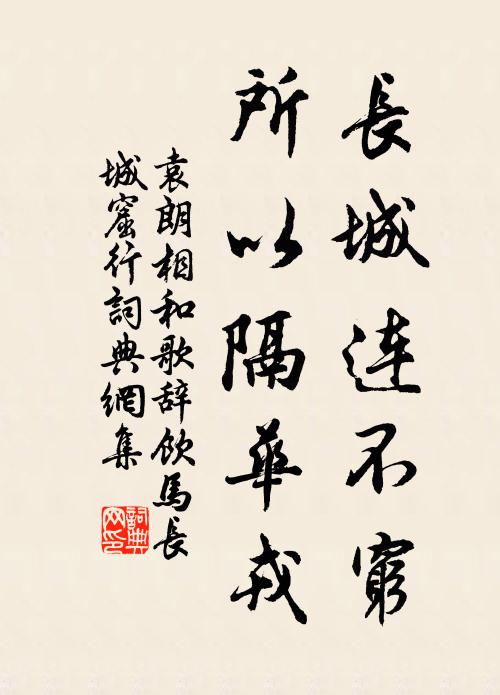 長城連不窮
所以隔華戎
袁朗相和歌辞飲馬長
城窟行詞典網集
詞典
网印